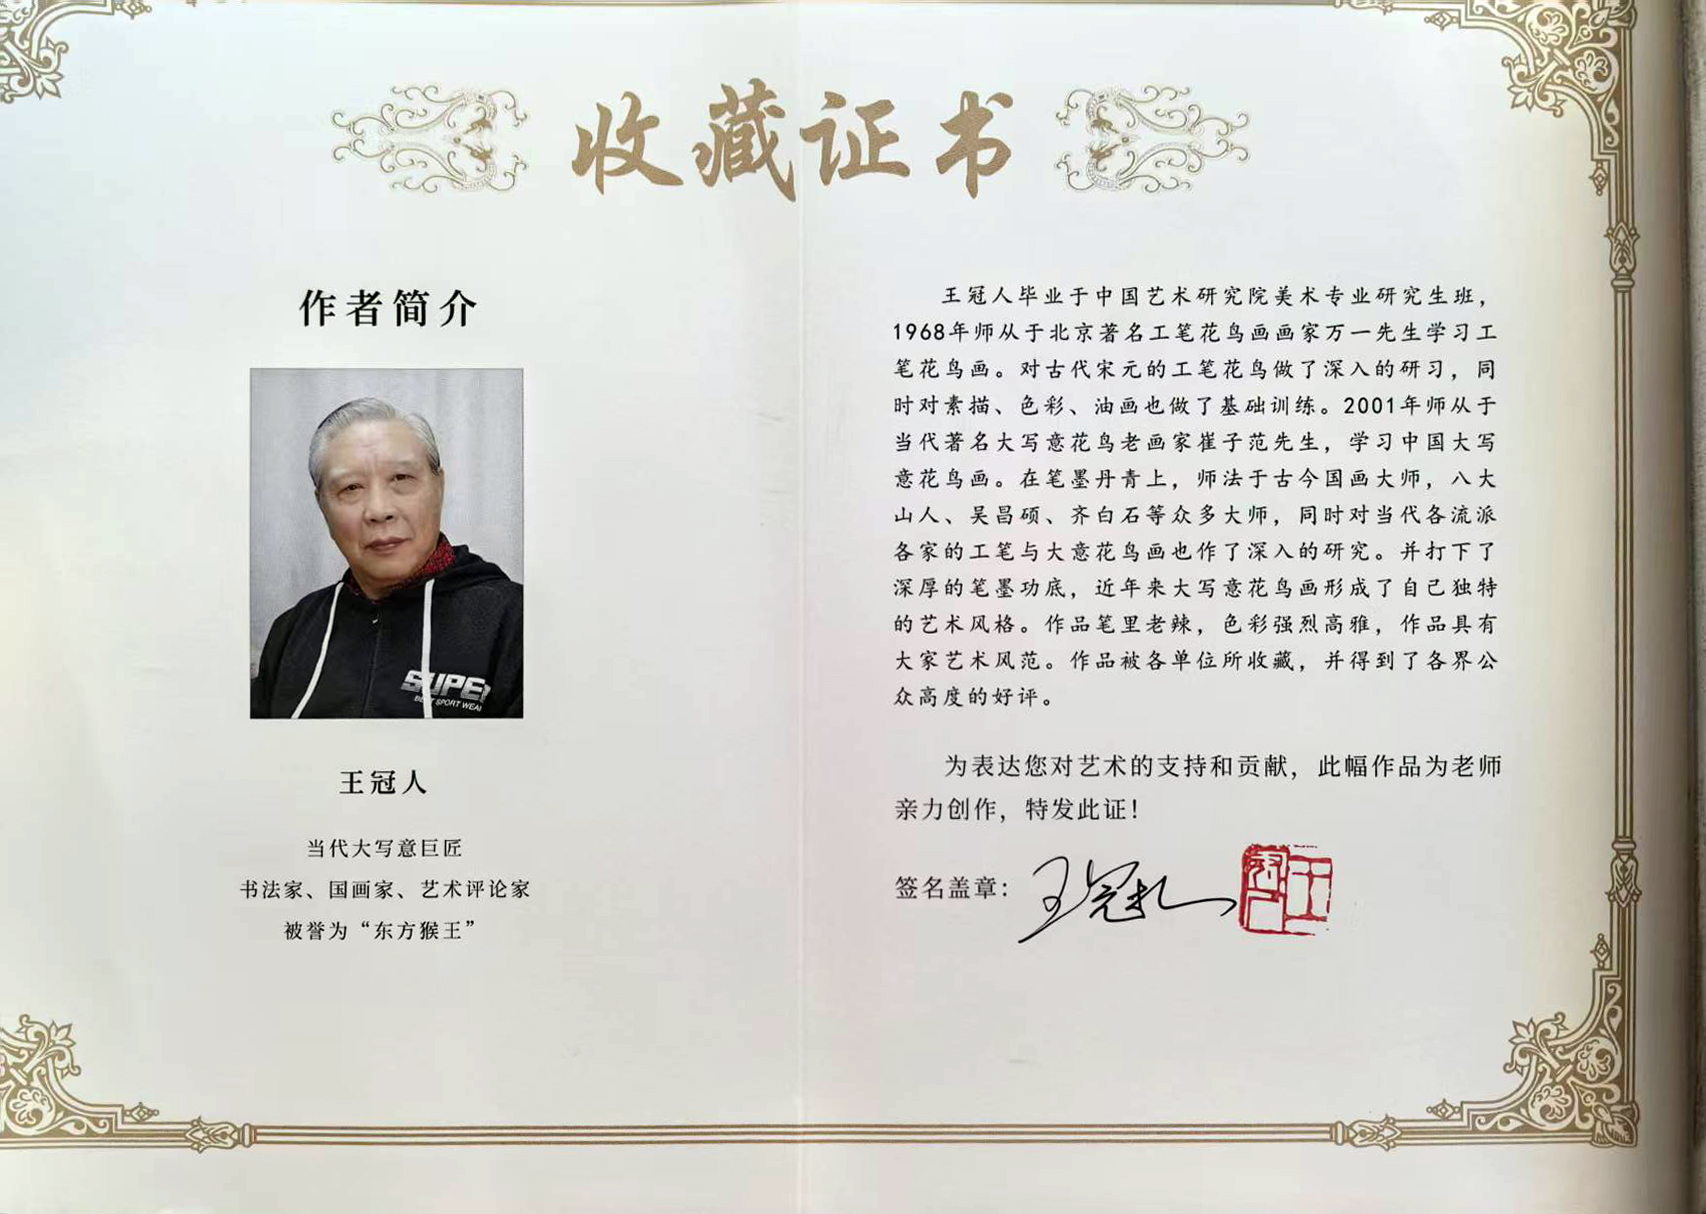 收藏证书
作者简介
SUPER
BEST SPORT WEAR
王冠人
当代大写意巨匠
书法家、国画家、艺术评论家
被誉为“东方猴王”
王冠人毕业于中国艺术研究院美术专业研究生班，
1968年师从于北京著名工笔花鸟画画家万一先生学习工
笔花鸟画。对古代宋元的工笔花鸟做了深入的研习，同
时对素描、色彩、油画也做了基础训练。2001年师从于
当代著名大写意花鸟老画家崔子范先生，学习中国大写
意花鸟画。在笔墨丹青上，师法于古今国画大师，八大
山人、吴昌硕、齐白石等众多大师，同时对当代各流派
各家的工笔与大意花鸟画也作了深入的研究。并打下了
深厚的笔墨功底，近年来大写意花鸟画形成了自己独特
的艺术风格。作品笔里老辣，色彩强烈高雅，作品具有
大家艺术风范。作品被各单位所收藏，并得到了各界公
众高度的好评。
为表达您对艺术的支持和贡献，此幅作品为老师
亲力创作，特发此证！
签名盖章：王冠人